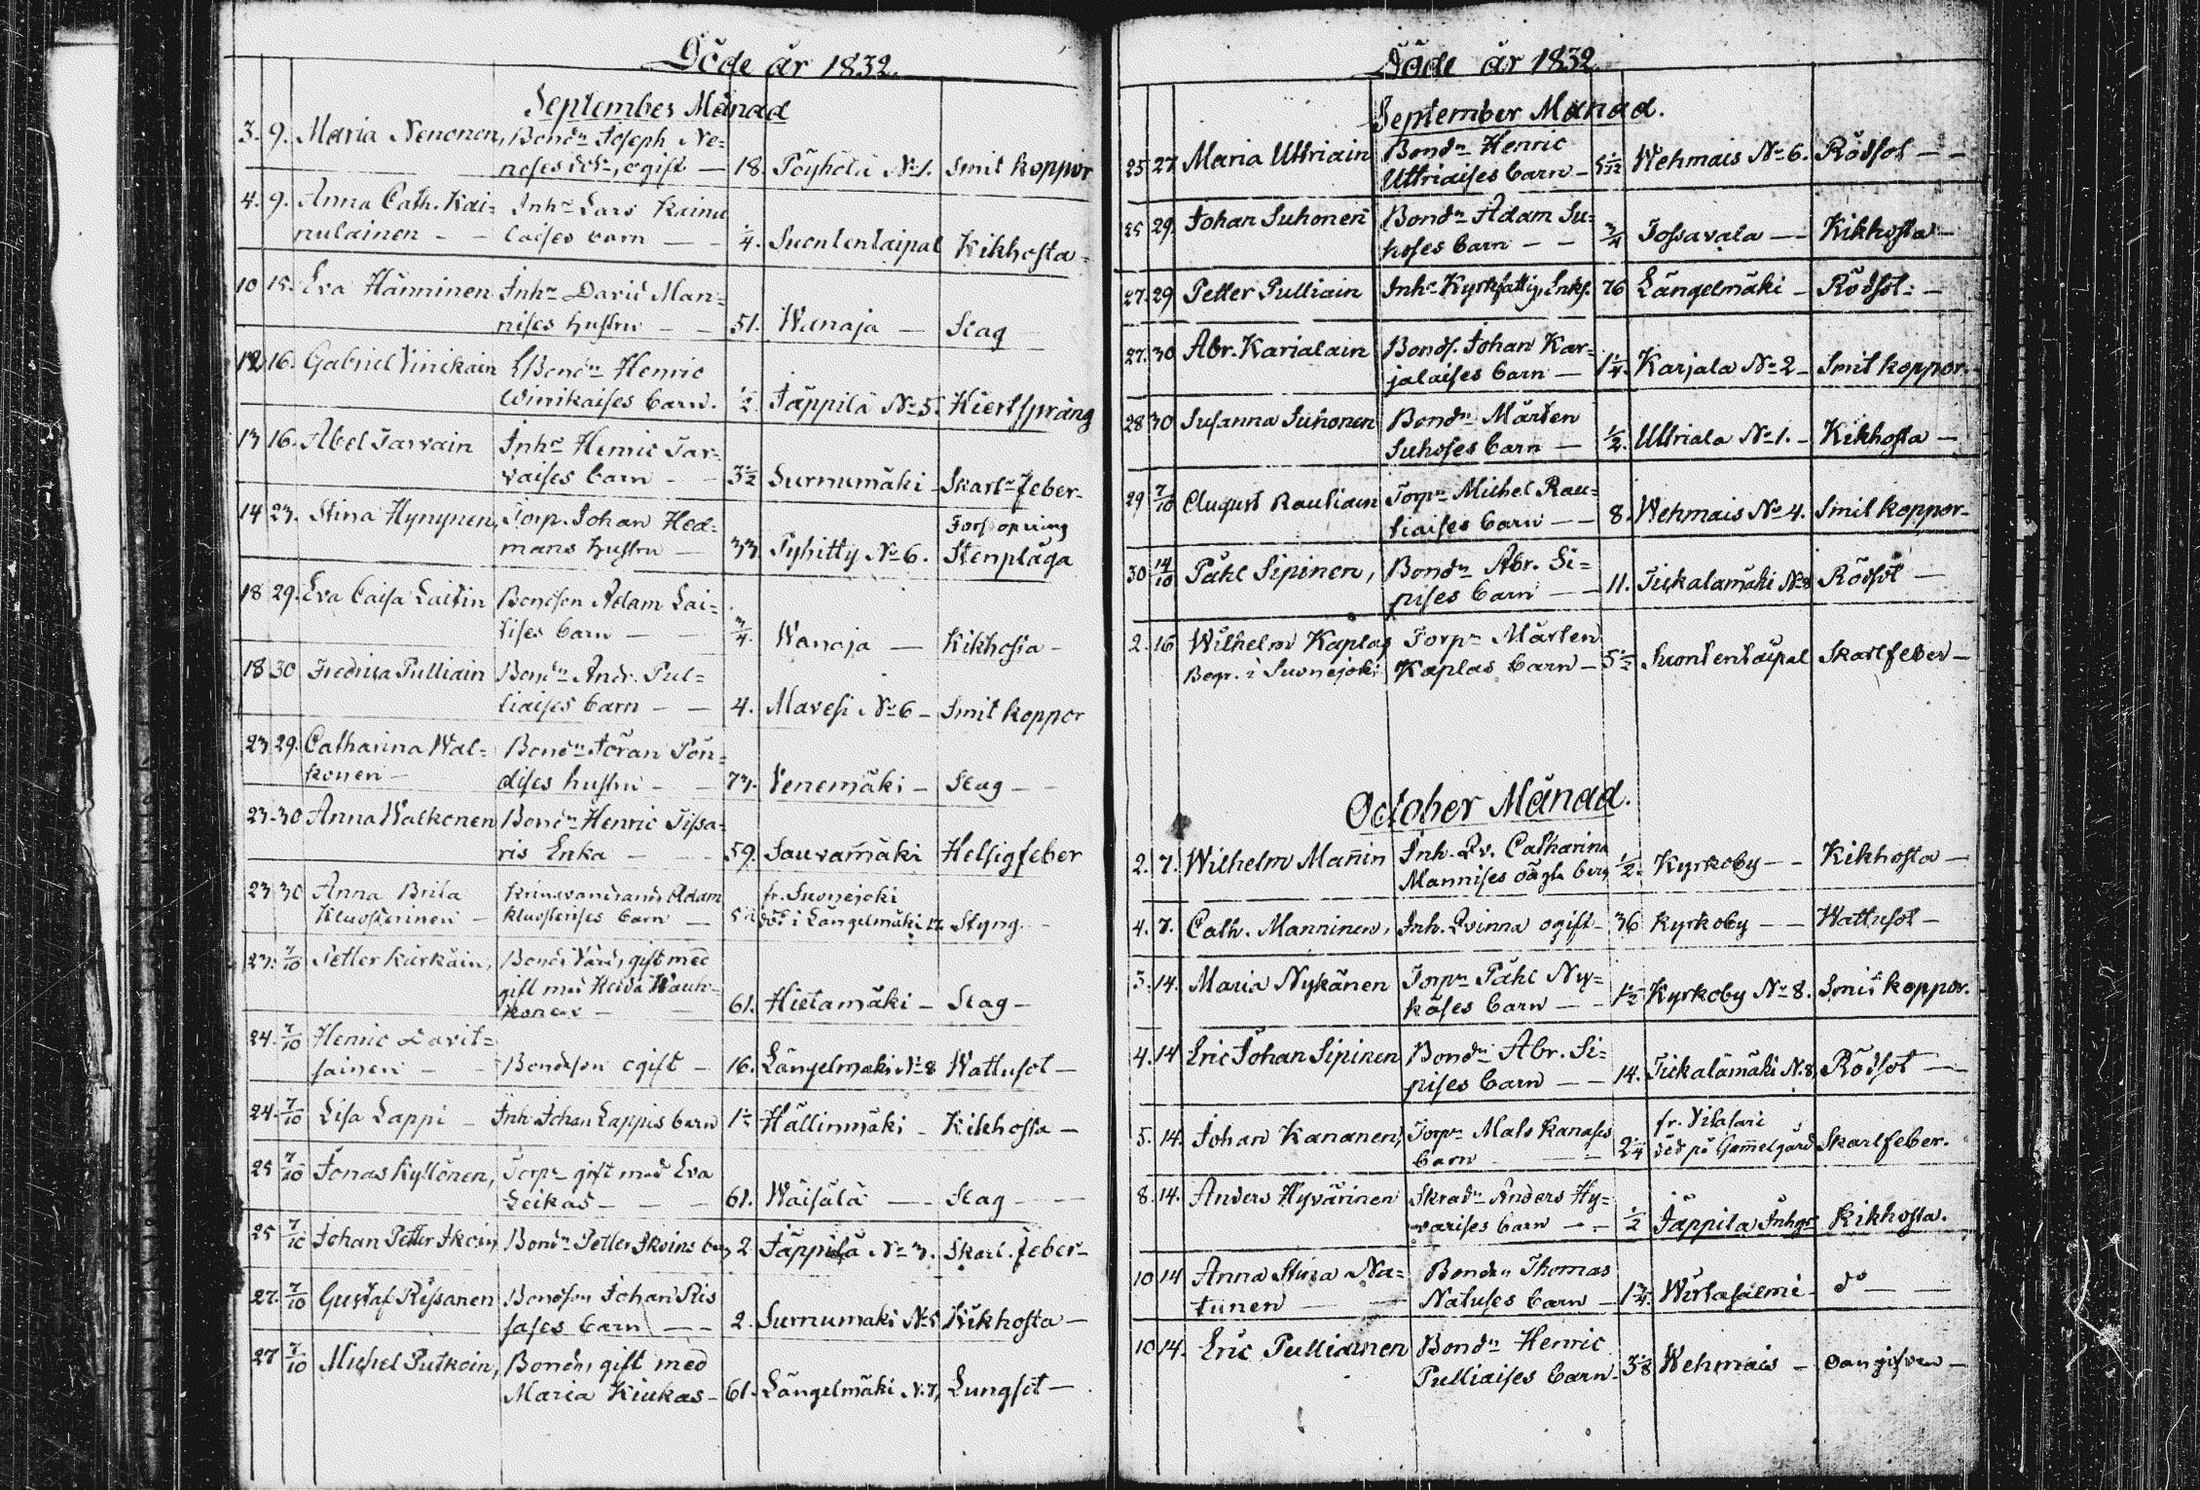 Döde år 1832.
September Månad
3. 9. Maria Nenonen, Bondn Joseph Ne-
noses dotr, ogift — 18. Pöyhölä No 1. Smit koppor
4. 9. Anna Cath. Kai- Inhr Lars Kainu
nulainen — laises barn — ¼. Suontentaipal Kikhosta
10 15. Eva Hänninen Inhr David Man-
nises hustru — 51. Wanaja — Slag
12 16. Gabriel Vinikain Bondn Henric
Winikaises barn. ½. Jäppilä No 5. Hiertsprång
13 16. Abel Tarvain Inhr Henric Tar-
vaises barn — 3½ Surnumäki Skarl. feber
14 23. Stina Hynynen, Torp. Johan Hed-
mans hustru — 33 Pyhitty No 6. Stenplåga
18 29. Eva Caisa Laitin Bondson Adam Lai-
tises barn — ¾. Wanaja — Kikhosta
18 30 Fredrica Pulliain Bondn Andr. Pul-
liaises barn — 4. Mavesi No 6 — Smit koppor
23 29. Catharina Wal- Bondn Jöran Pön-
konen — dises hustru — 73. Venemäki — Slag —
23. 30 Anna Walkonen Bondn Henric Tissa-
ris Enka — 59. Sauvamäki Hetsigfeber
23 30 Anna Brita Adam fr. Suonejoki
barn — död i Längelmäki 12. Styng.
23. 7/10 Petter Kärkäin, gift med
gift med Heda Wauh-
konen — 61. Hietamäki — Slag —
24. 7/10 Henric Lavit-
sainen — Bondeson ogift — 16. Längelmäki No 8 Wattusot —
24. 7/10 Lisa Lappi — Inh Johan Lappis barn 1½ Hällinmäki — Kikhosta —
25 7/10 Jonas Kyllönen, Torpr gift med Eva
Leikas — 61. Wäisälä — Slag —
25 7/10 Johan Petter Ikoin, Bondn Petter Ikoins barn 2 Jäppilä No 3. Skarl. feber
27. 7/10 Gustaf Rissanen Bondson Johan Ris
sases barn — 2. Surnumäki No 5 Kikhosta —
27 7/10 Michel Putkoin, Bonde, gift med
Maria Kiukas — 61. Längelmäki N. 7, Lungsot —
Döde år 1832
September Månad.
25 27 Maria Uttriain Bondn Henric
Uttriaises barn — 5 1/12 Wehmais No 6. Rödsot —
25 29. Johan Suhonen Bondn Adam Su-
hoses barn — ¾ Tossavala — Kikhosta —
27. 29 Petter Pulliain Inhr Kyrkfattig, Enkl. 76 Längelmäki — Rödsot —
27. 30 Abr. Karialain Bonds. Johan Kar-
jalaises barn — 1¼. Karjala No 2 — Smit koppor.
28 30 Susanna Suhonen Bondn Mårten
Suhoses barn — ½. Uttriala No 1. — Kikhosta —
29 7/10 August Rautiain Torpr Michel Rau-
tiaises barn — 8. Wehmais No 4. Smit koppor —
30 14/10 Påhl Sipinen, Bondn Abr. Si-
pises barn — 11. Tiikalamäki No 8 Rödsot —
2. 16 Wilhelm Kaplas Torpr Mårten
Begr. i Suonejoki Kaplas barn — 5½ Suontentaipal Skarlfeber —
October Månad.
2. 7. Wilhelm Mañin Inh. Qv. Catharina
Mannises oägta barn ½. Kyrkoby — Kikhosta —
4. 7. Cath. Manninen, Inh. Qvinna ogift — 36 Kyrkoby — Wattusot —
3. 14. Maria Nykänen Torpr Påhl Ny-
käses barn — 1½ Kyrkoby No 8. Smit koppor.
4. 14 Eric Johan Sipinen Bondn Abr. Si-
pises barn — 14. Tiikalamäki N. 8, Rödsot —
5. 14. Johan Kananen, Torpr Mats Kanases fr. Vitasari
barn — 2¼ död på Gam̃elgård Skarlfeber.
8. 14. Anders Hyvärinen Skradr Anders Hy-
värises barn — ½ Jäppilä Inhgr Kikhosta.
10 14 Anna Stina Na- Bonden Thomas
tunen — Natuses barn — 1¾. Wirtasalmi — do —
10 14. Eric Pulliainen Bondn Henric
Pulliaises barn — 3/8 Wehmais — oangifven —